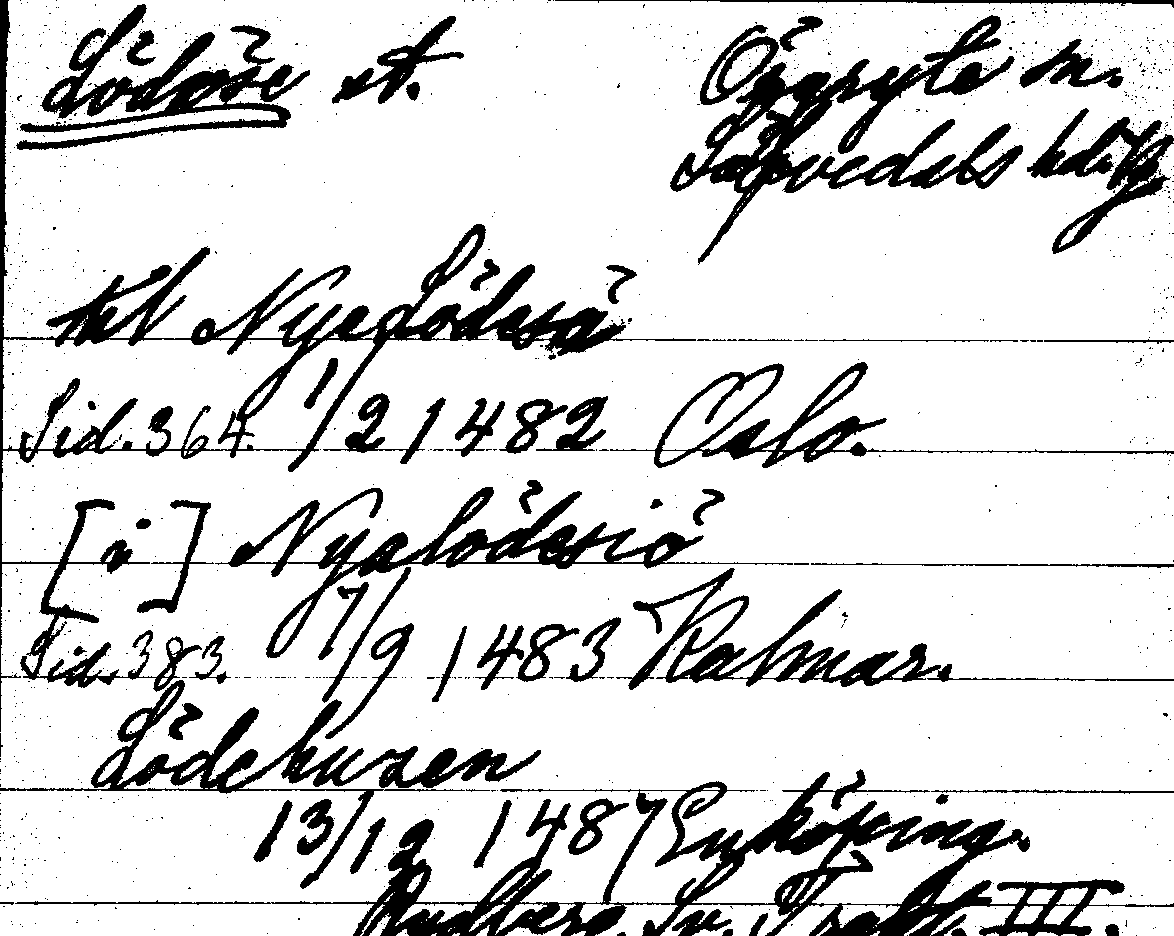 Lödöse st. Örgryte sn.
Sävedals hd.
till Nyelödesö
Sid. 364. 1/2 1482 Oslo.
[i] Nyalödesiö
Sid. 383. 7/9 1483 Kalmar.
Lödehusen
13/12 1487 Enköping.
Rydberg. Sv. Trakt. III.